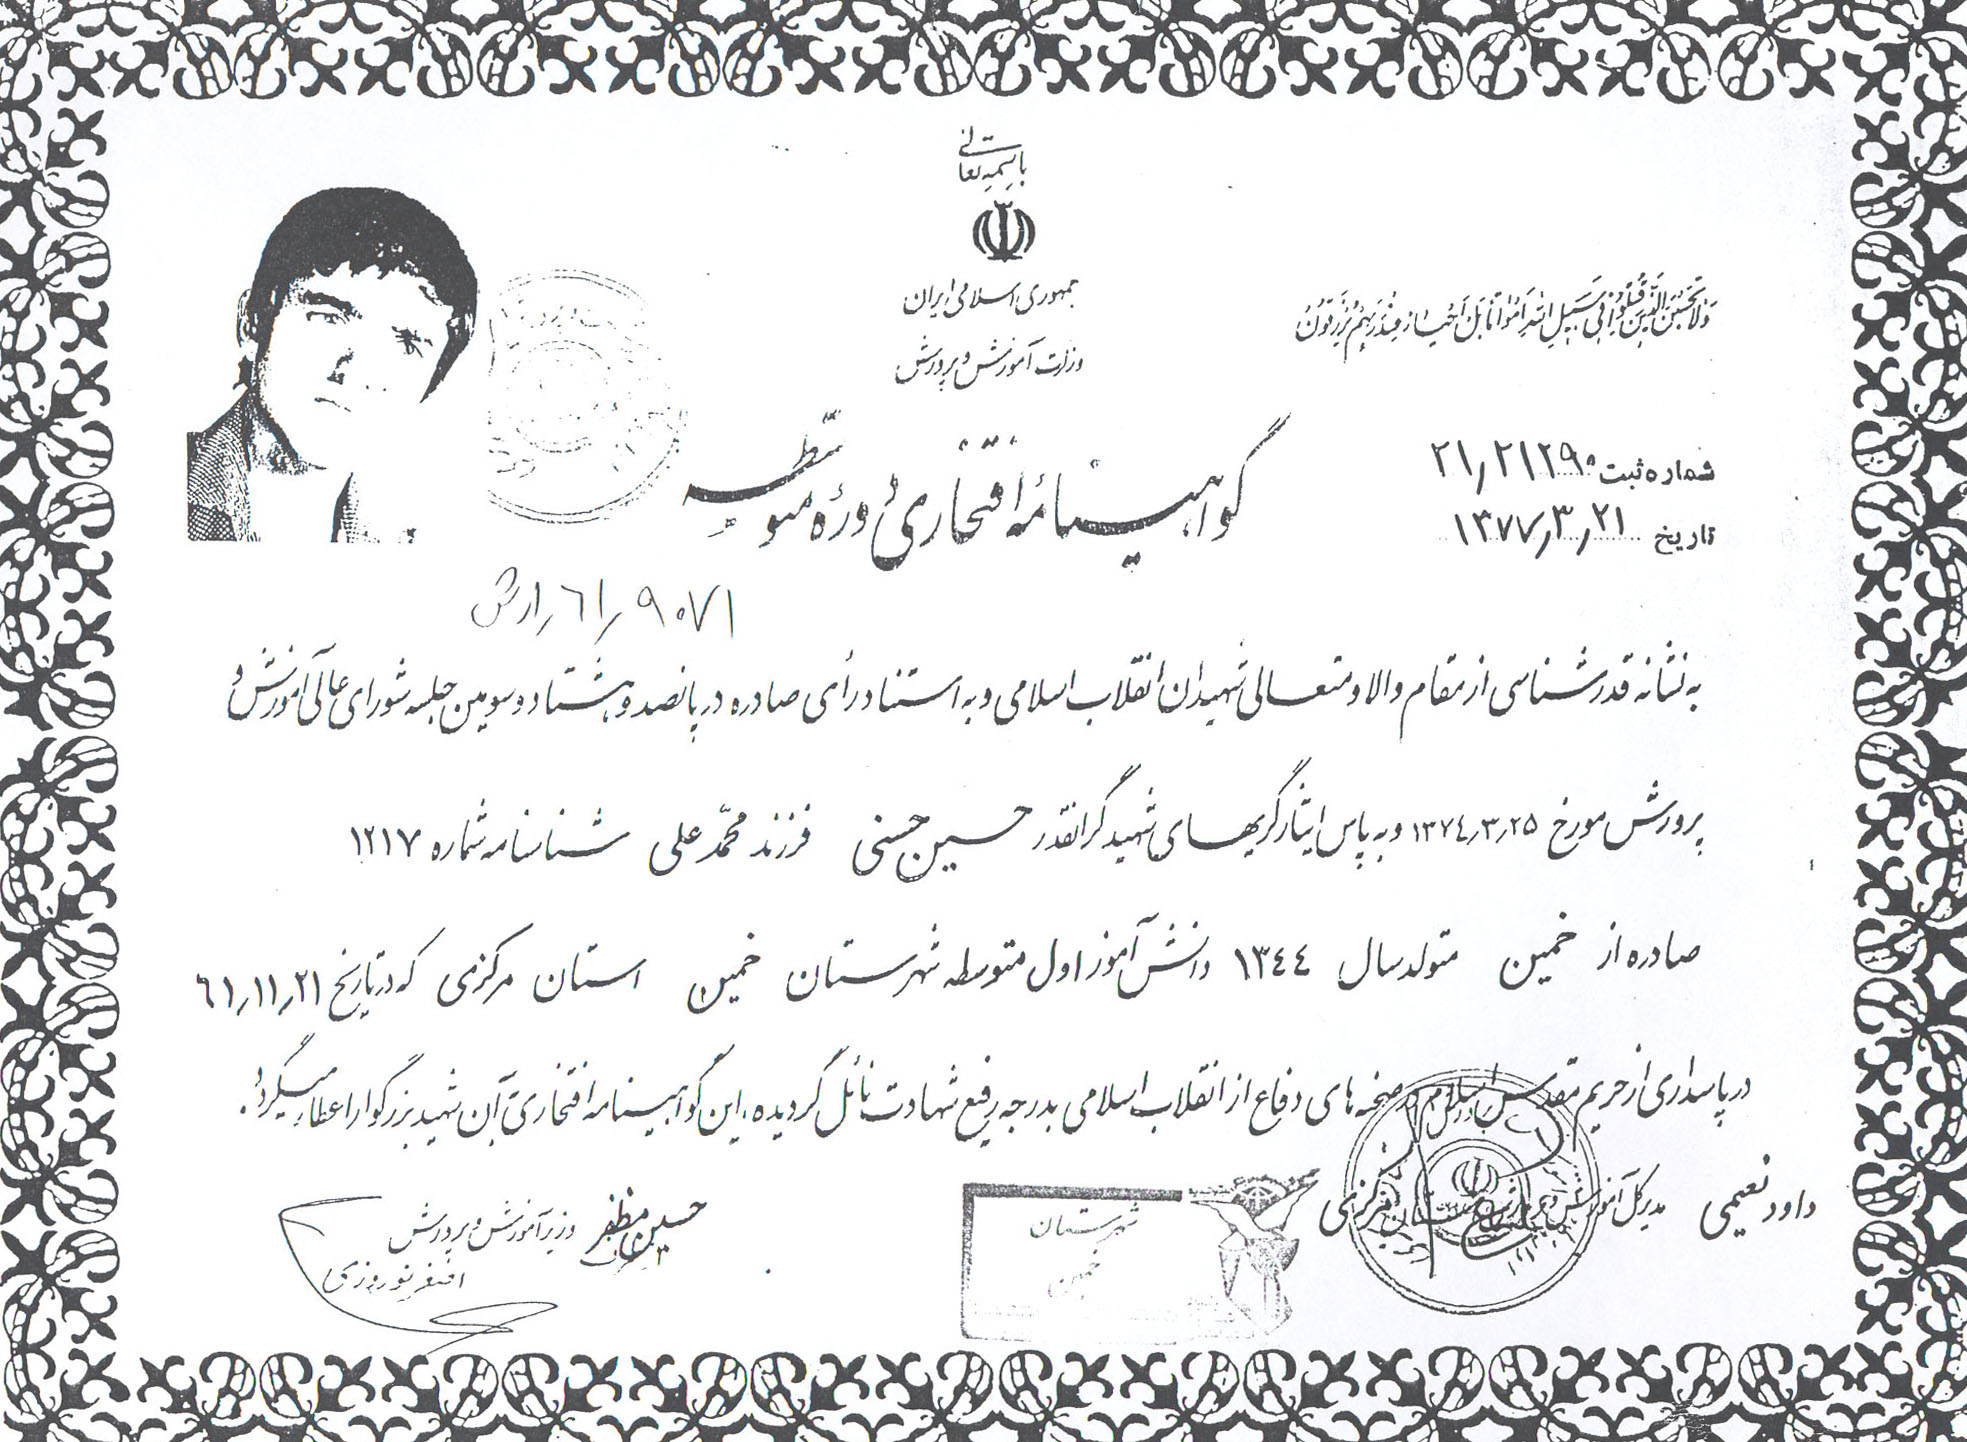 باسمه تعالی
جمهوری اسلامی ایران
وزارت آموزش و پرورش
ولا تحسبن الذین قتلوا فی سبیل الله امواتا بل احیاء عند ربهم یرزقون
شماره ثبت ۲۱٫۲۱۲۹۰
تاریخ ۱۳۷۷٫۳٫۲۱
گواهینامهٔ افتخاری دورهٔ متوسطه
۶۱٫۹۰۷۱
به نشانه قدرشناسی از مقام والا و متعالی شهیدان انقلاب اسلامی و به استناد رأی صادره در پانصد و هشتاد و سومین جلسه شورای عالی آموزش و
پرورش مورخ ۱۳۷٤٫۳٫۲۵ و به پاس ایثارگریهای شهید گرانقدر حسین حسنی فرزند محمّد علی شناسنامه شماره ۱۲۱۷
صادره از خمین متولد سال ۱۳٤٤ دانش آموز اول متوسطه شهرستان خمین استان مرکزی که در تاریخ ۶۱٫۱۱٫۲۱
در پاسداری از حریم مقدس اسلام در صحنه های دفاع از انقلاب اسلامی بدرجه رفیع شهادت نائل گردیده، این گواهینامه افتخاری به آن شهید بزرگوار اعطاء میگردد.
داود نعیمی مدیرکل آموزش و پرورش استان مرکزی
حسین مظفر وزیر آموزش و پرورش
اصغر نوروزی
شهرستان
خمین